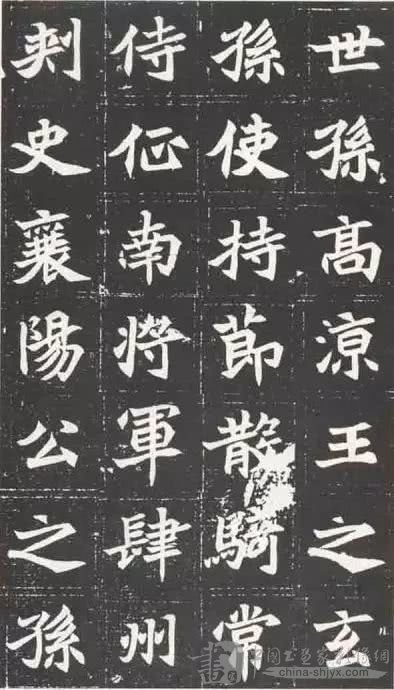 世孫高涼王之玄
孫使持節散騎常
侍征南將軍肆州
刺史襄陽公之孫
china-shjyx.com